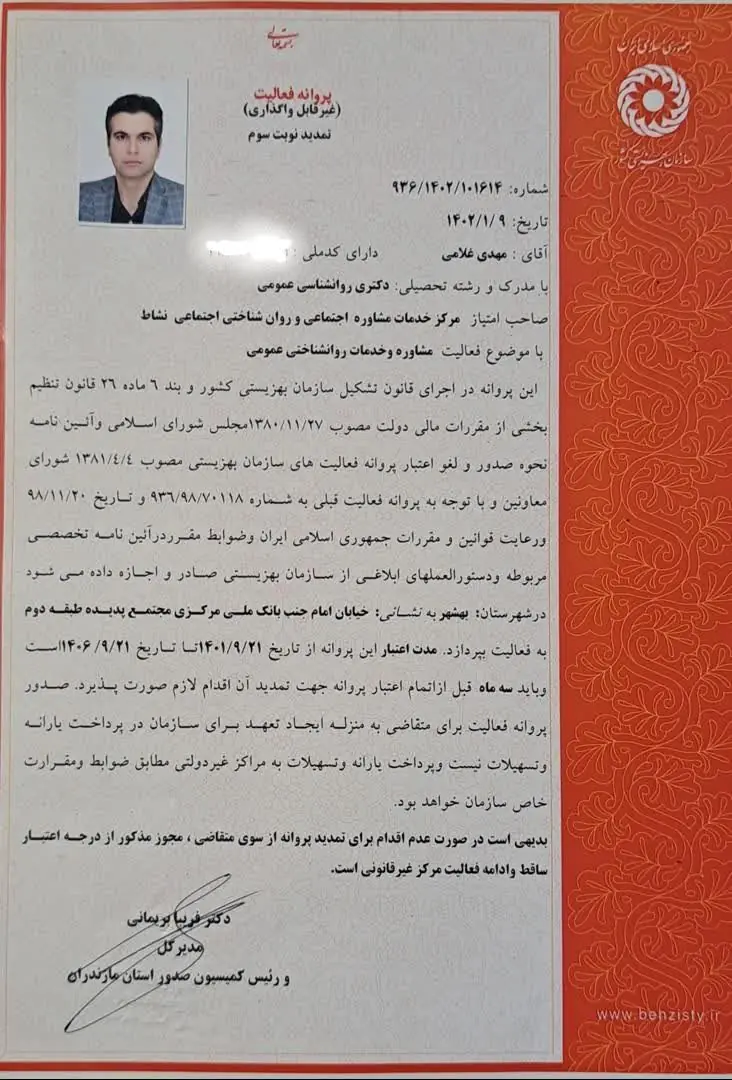 بسمه تعالی
جمهوری اسلامی ایران
سازمان بهزیستی کشور
پروانه فعالیت
(غیرقابل واگذاری)
تمدید نوبت سوم
شماره: ۹۳۶/۱۴۰۲/۱۰۱۶۱۴
تاریخ: ۱۴۰۲/۱/۹
آقای : مهدی غلامی دارای کدملی :
با مدرک و رشته تحصیلی: دکتری روانشناسی عمومی
صاحب امتیاز مرکز خدمات مشاوره اجتماعی و روان شناختی اجتماعی نشاط
با موضوع فعالیت مشاوره وخدمات روانشناختی عمومی
این پروانه در اجرای قانون تشکیل سازمان بهزیستی کشور و بند ۶ ماده ۲۶ قانون تنظیم
بخشی از مقررات مالی دولت مصوب ۱۳۸۰/۱۱/۲۷مجلس شورای اسلامی وآئین نامه
نحوه صدور و لغو اعتبار پروانه فعالیت های سازمان بهزیستی مصوب ۱۳۸۱/۴/۴ شورای
معاونین و با توجه به پروانه فعالیت قبلی به شماره ۹۳۶/۹۸/۷۰۱۱۸ و تاریخ ۹۸/۱۱/۲۰
ورعایت قوانین و مقررات جمهوری اسلامی ایران وضوابط مقرردرآئین نامه تخصصی
مربوطه ودستورالعملهای ابلاغی از سازمان بهزیستی صادر و اجازه داده می شود
درشهرستان: بهشهر به نشانی: خیابان امام جنب بانک ملی مرکزی مجتمع پدیده طبقه دوم
به فعالیت بپردازد. مدت اعتبار این پروانه از تاریخ ۱۴۰۱/۹/۲۱تا تاریخ ۱۴۰۶/۹/۲۱است
وباید سه ماه قبل ازاتمام اعتبار پروانه جهت تمدید آن اقدام لازم صورت پذیرد. صدور
پروانه فعالیت برای متقاضی به منزله ایجاد تعهد برای سازمان در پرداخت یارانه
وتسهیلات نیست وپرداخت یارانه وتسهیلات به مراکز غیردولتی مطابق ضوابط ومقررارت
خاص سازمان خواهد بود.
بدیهی است در صورت عدم اقدام برای تمدید پروانه از سوی متقاضی ، مجوز مذکور از درجه اعتبار
ساقط وادامه فعالیت مرکز غیرقانونی است.
دکتر فریبا بریمانی
مدیرکل
و رئیس کمیسیون صدور استان مازندران
www.behzisty.ir